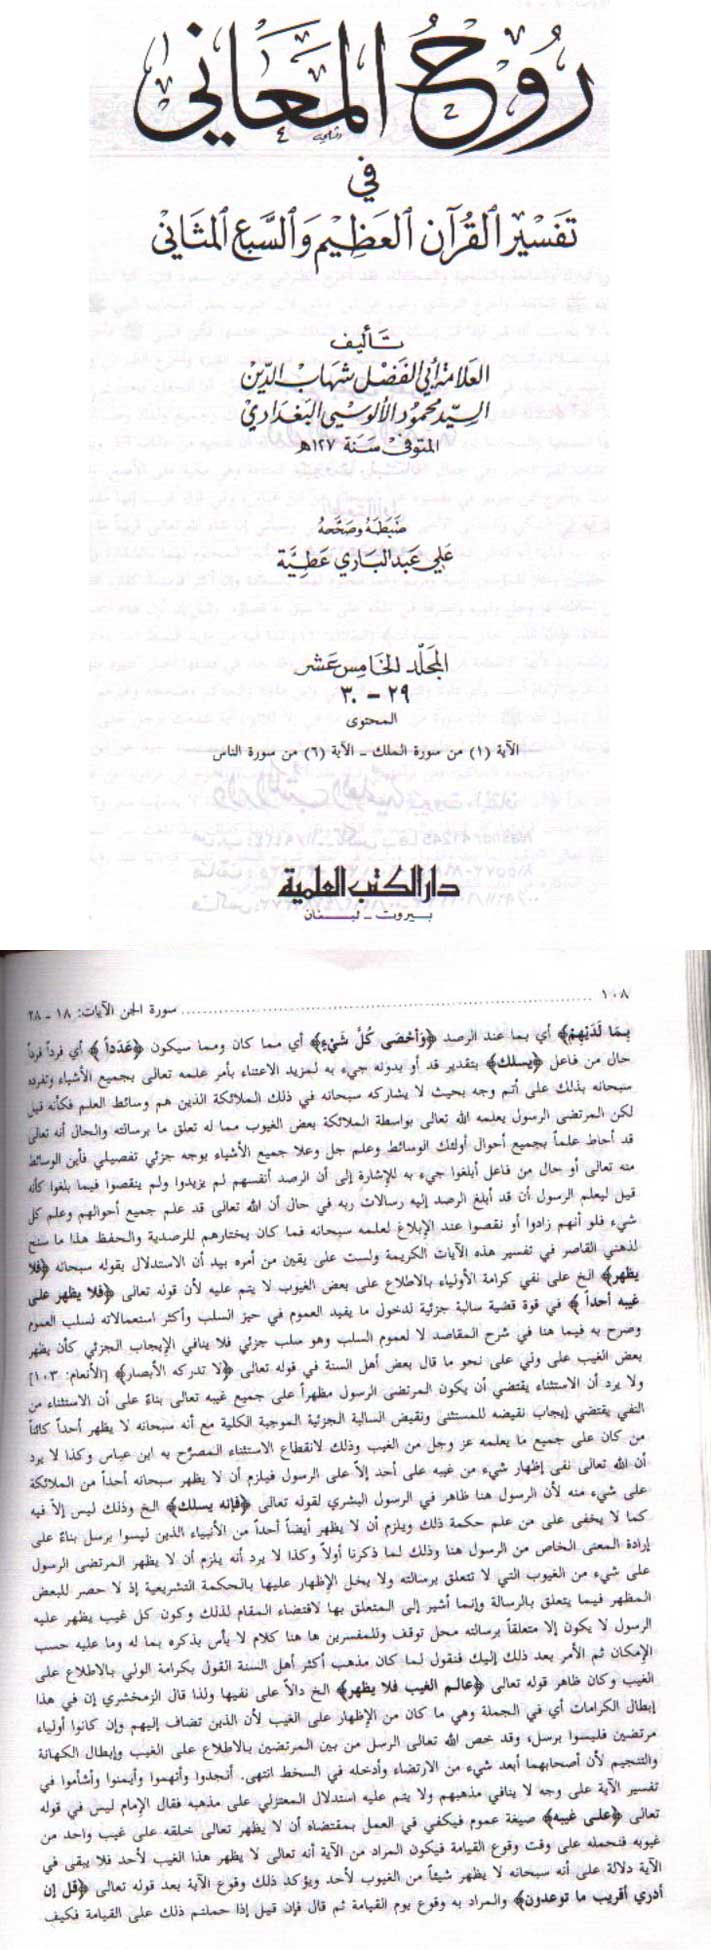 روح المعاني
في
تفسير القرآن العظيم والسبع المثاني
تأليف
العلامة أبي الفضل شهاب الدين
السيد محمود الألوسي البغدادي
المتوفى سنة ١٢٧ه
ضبطه وصححه
علي عبد الباري عطية
المجلد الخامس عشر
٢٩ - ٣٠
المحتوى
الآية (١) من سورة الملك - الآية (٦) من سورة الناس
دار الكتب العلمية
بيروت - لبنان
١٠٨ ........ سورة الجن الآيات: ١٨ - ٢٨
بما لديهم﴾ أي بما عند الرصد ﴿وأحصى كل شيء﴾ أي مما كان ومما سيكون ﴿عدداً﴾ أي فرداً فرداً
حال من فاعل ﴿يسلك﴾ بتقدير قد أو بدونه جيء به لمزيد الاعتناء بأمر علمه تعالى بجميع الأشياء وتفرده
سبحانه بذلك على أتم وجه بحيث لا يشاركه سبحانه في ذلك الملائكة الذين هم وسائط العلم فكأنه قيل
لكن المرتضى الرسول يعلمه الله تعالى بواسطة الملائكة بعض الغيوب مما له تعلق ما برسالته والحال أنه تعالى
قد أحاط علماً بجميع أحوال أولئك الوسائط وعلم جل وعلا جميع الأشياء بوجه جزئي تفصيلي فأين الوسائط
منه تعالى أو حال من فاعل أبلغوا جيء به للإشارة إلى أن الرصد أنفسهم لم يزيدوا ولم ينقصوا فيما بلغوا كأنه
قيل ليعلم الرسول أن قد أبلغ الرصد إليه رسالات ربه في حال أن الله تعالى قد علم جميع أحوالهم وعلم كل
شيء فلو أنهم زادوا أو نقصوا عند الإبلاغ لعلمه سبحانه فما كان يختارهم للرصدية والحفظ هذا ما سنح
لذهني القاصر في تفسير هذه الآيات الكريمة ولست على يقين من أمره بيد أن الاستدلال بقوله سبحانه ﴿فلا
يظهر﴾ الخ على نفي كرامة الأولياء بالاطلاع على بعض الغيوب لا يتم عليه لأن قوله تعالى ﴿فلا يظهر على
غيبه أحداً﴾ في قوة قضية سالبة جزئية لدخول ما يفيد العموم في حيز السلب وأكثر استعمالاته لسلب العموم
وصرح به فيما هنا في شرح المقاصد لا لعموم السلب وهو سلب جزئي فلا ينافي الإيجاب الجزئي كأن يظهر
بعض الغيب على ولي على نحو ما قال بعض أهل السنة في قوله تعالى ﴿لا تدركه الأبصار﴾ [الأنعام: ١٠٣]
ولا يرد أن الاستثناء يقتضي أن يكون المرتضى الرسول مظهراً على جميع غيبه تعالى بناءً على أن الاستثناء من
النفي يقتضي إيجاب نقيضه للمستثنى ونقيض السالبة الجزئية الموجبة الكلية مع أنه سبحانه لا يظهر أحداً كائناً
من كان على جميع ما يعلمه عز وجل من الغيب وذلك لانقطاع الاستثناء المصرّح به ابن عباس وكذا لا يرد
أن الله تعالى نفى إظهار شيء من غيبه على أحد إلاّ على الرسول فيلزم أن لا يظهر سبحانه أحداً من الملائكة
على شيء منه لأن الرسول هنا ظاهر في الرسول البشري لقوله تعالى ﴿فإنه يسلك﴾ الخ وذلك ليس إلاّ فيه
كما لا يخفى على من علم حكمة ذلك ويلزم أن لا يظهر أيضاً أحداً من الأنبياء الذين ليسوا برسل بناءً على
إرادة المعنى الخاص من الرسول هنا وذلك لما ذكرنا أولاً وكذا لا يرد أنه يلزم أن لا يظهر المرتضى الرسول
على شيء من الغيوب التي لا تتعلق برسالته ولا يخل الإظهار عليها بالحكمة التشريعية إذ لا حصر للبعض
المظهر فيما يتعلق بالرسالة وإنما أشير إلى المتعلق بها لاقتضاء المقام لذلك وكون كل غيب يظهر عليه
الرسول لا يكون إلا متعلقاً برسالته محل توقف وللمفسرين ها هنا كلام لا بأس بذكره بما له وما عليه حسب
الإمكان ثم الأمر بعد ذلك إليك فنقول لما كان مذهب أكثر أهل السنة القول بكرامة الولي بالاطلاع على
الغيب وكان ظاهر قوله تعالى ﴿عالم الغيب فلا يظهر﴾ الخ دالاً على نفيها ولذا قال الزمخشري إن في هذا
إبطال الكرامات أي في الجملة وهي ما كان من الإظهار على الغيب لأن الذين تضاف إليهم وإن كانوا أولياء
مرتضين فليسوا برسل، وقد خص الله تعالى الرسل من بين المرتضين بالاطلاع على الغيب وإبطال الكهانة
والتنجيم لأن أصحابهما أبعد شيء من الارتضاء وأدخله في السخط انتهى. أنجدوا وأتهموا وأيمنوا وأشأموا في
تفسير الآية على وجه لا ينافي مذهبهم ولا يتم عليه استدلال المعتزلي على مذهبه فقال الإمام ليس في قوله
تعالى ﴿على غيبه﴾ صيغة عموم فيكفي في العمل بمقتضاه أن لا يظهر تعالى خلقه على غيب واحد من
غيوبه فنحمله على وقت وقوع القيامة فيكون المراد من الآية أنه تعالى لا يظهر هذا الغيب لأحد فلا يبقى في
الآية دلالة على أنه سبحانه لا يظهر شيئاً من الغيوب لأحد ويؤكد ذلك وقوع الآية بعد قوله تعالى ﴿قل إن
أدري أقريب ما توعدون﴾ والمراد به وقوع يوم القيامة ثم قال فإن قيل إذا حملتم ذلك على القيامة فكيف